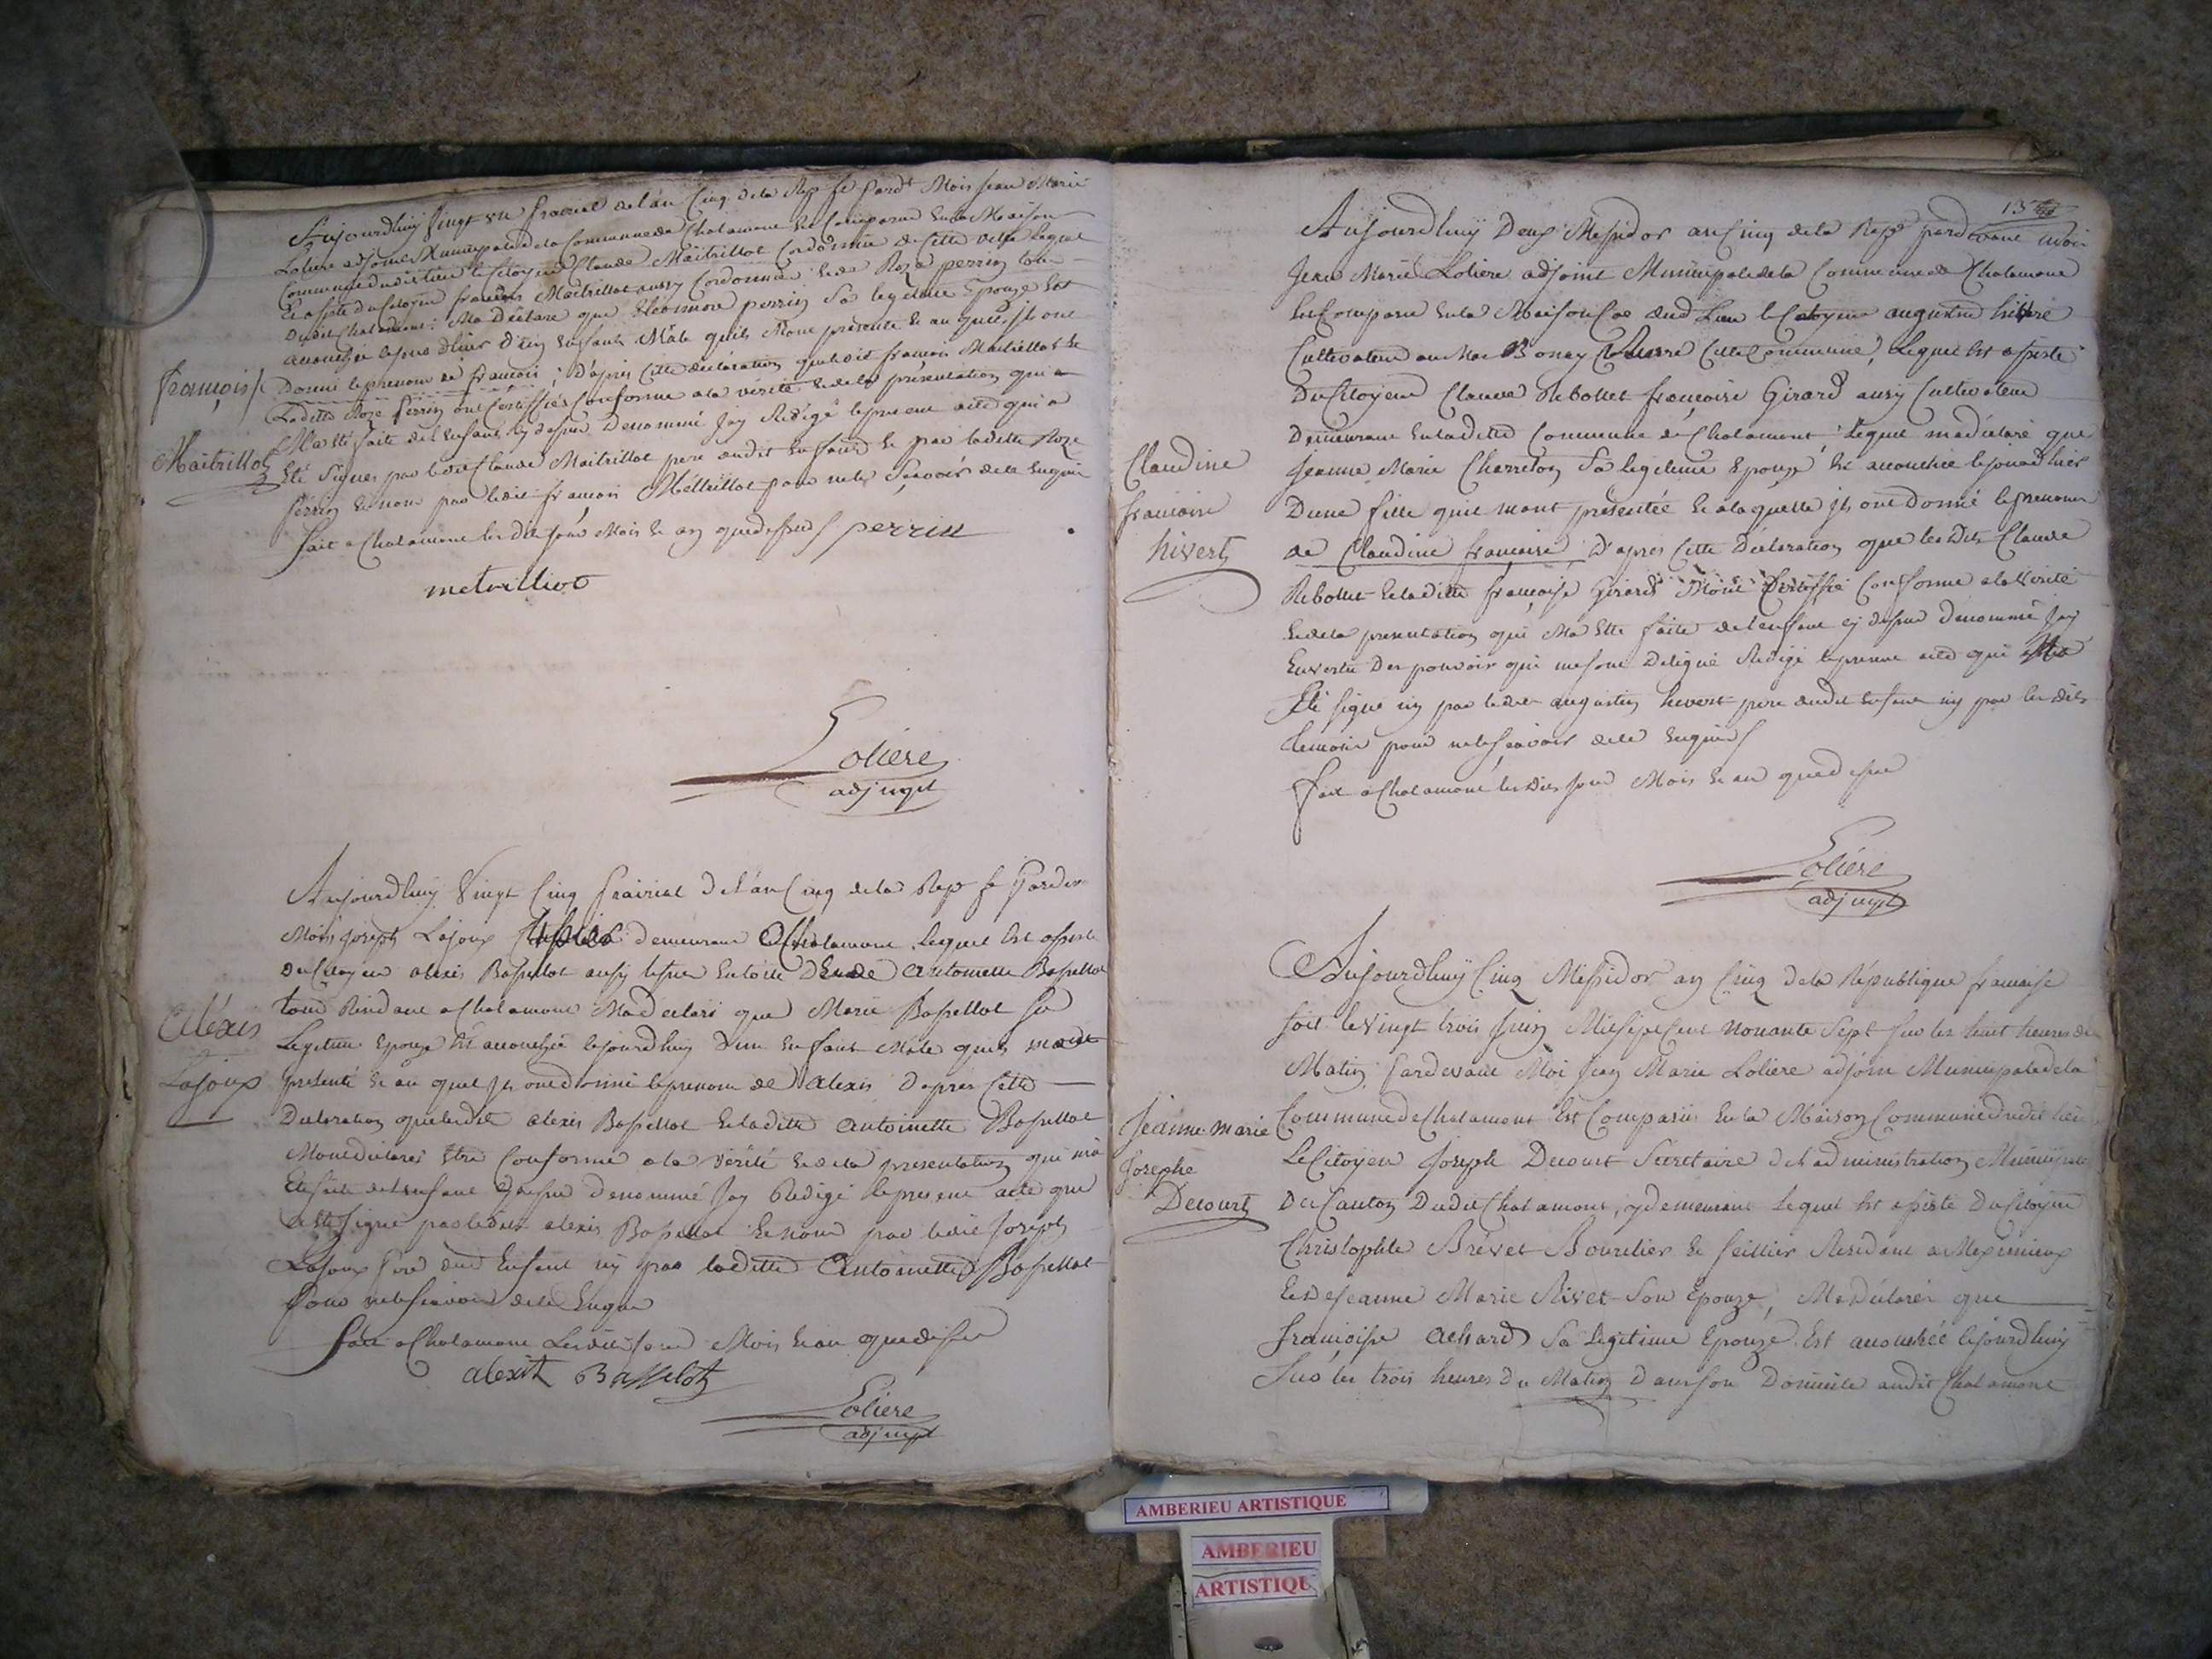 Aujourdhuy Vingt un prairial de l'an Cinq de la Rep fse pardt Moi Jean Marie
Loliere adjoint Municipale de la Commune de Chalamont Est Comparu en la Maison
Commune dudit lieu le Citoyen Claude Maitrillot Cordonnier de Cette ville lequel
Est assisté du Citoyen francois Maitrillot aussy Cordonnier Et de Roze perrin tous
dudit Chalamont. Ma Declaré que perrin Sa legitime Epouze Est
accouchée lejour dhier d'un Enfant Mâle quils Mont présenté Et au quel jls ont
Donné leprenom de francois ; D'après Cette déclaration queledit francois Maitrillot Et
Ladette Roze perrin ont Certiffiés Conforme a la vérité Et de la présentation qui
Ma Eté faite de l'Enfant cy dessus Denommé Jay Redigé lepresent acte qui a
Eté Signés par ledit Claude Maitrillot pere dudit Enfant Et par ladette Roze
perrin Et non par ledit francois Méttrillot pour ne les Scavoir de ce Enquis
fait a Chalamont les dits jour Mois Et an quedessus / perrin
metrilliot
françois
Maitrillot
Loliere
adj mpl
Aujourdhuy Vingt Cinq prairial de l'an Cinq de la Rep fse Pardev
Moi Joseph Lajoux demeurant a Chalamont Lequel Est assisté
du Citoyen alexis Bassellot aussy Et de Antoinette Bassellot
tous Residant a Chalamont Ma declaré que Marie Bassellot Sa
Legitime Epouze Est accouchée lejourdhuy d'un Enfant Mâle quils mont
présenté Et au quel jls ont donné leprenom de Alexis D'apres Cette
Declaration queledit alexis Bassellot Et ladette Antoinette Bassellot
Mont declarés Etre Conforme a la Vérité Et de la presentation qui ma
Eté faite de l'enfant cy dessus denommé Jay Redigé lepresent acte qui
a Eté Signé par ledit alexis Bassellot Et non par ledit Joseph
Lajoux pere dud Enfant ny par ladette Antoinette Bassellot
pour ne le Scavoir de ce Enquis
fait a Chalamont Lesdits jour Mois Et an quedessus
Alexis
Lajoux
alexit Basselot
Loliere
adj mpl
13
Aujourdhuy Deux Messidor an Cinq de la Rep pardevant moi
Jean Marie Loliere adjoint Municipale de la Commune de Chalamont
Est Comparu en la Maison Coe dud Lieu le Citoyen augustin
Cultivateur au Mas Cette Commune, Lequel Est assisté
Du Citoyen Claude Rebollet françoise Girard aussy Cultivateur
Demeurant En ladette Commune de Chalamont. Lequel ma déclaré que
Jeanne Marie Charreton Sa legitime Epouze Est accouchée lejour dhier
Dune fille quil mont présentée Et a laquelle jls ont Donné leprenom
de Claudine francoise ; D'après Cette Déclaration que les Dits Claude
Rebollet Et ladette françoise Girard Mont Certiffié Conforme a la Vérité
Et de la presentation qui Ma Etté faite de l'enfant cy dessus dénommé Jay
En vertu Des pouvoir qui me sont Deligué Redigé lepresent acte qui Na
Eté signé ny par ledit augustin hivert pere dudit Enfant ny par les dits
temoin pour ne le scavoir de ce Enquis /
fait a Chalamont les dits jour Mois Et an quedessus
Claudine
francoise
hivert
Loliére
adj mpl
Aujourdhuy Cinq Messidor an Cinq de la République francaise
soit le vingt trois Juin Mil Sept Cent Nonante Sept Sur les huit heures du
Matin Pardevant Moi Jean Marie Loliere adjoint Municipale de la
Commune de Chalamont Est Comparus En la Maison Commune dudit lieu
Le Citoyen Joseph Decourt Secrétaire de l'administration Municipale
Du Canton Dudit Chalamont, y demeurant Lequel Est assisté Du Citoyen
Christophle Brévet Bourelier Et Seillier Residant a Meximieux
Et de Jeanne Marie Rivet Son Epouze, Ma Déclaré que
Françoise Achard Sa Legitime Epouze Est accouchée lejourdhuy
Sur les trois heures Du Matin Dans son Domicile audit Chalamont
Jeanne Marie
Josephe
Decourt
AMBERIEU ARTISTIQUE
AMBERIEU
ARTISTIQU